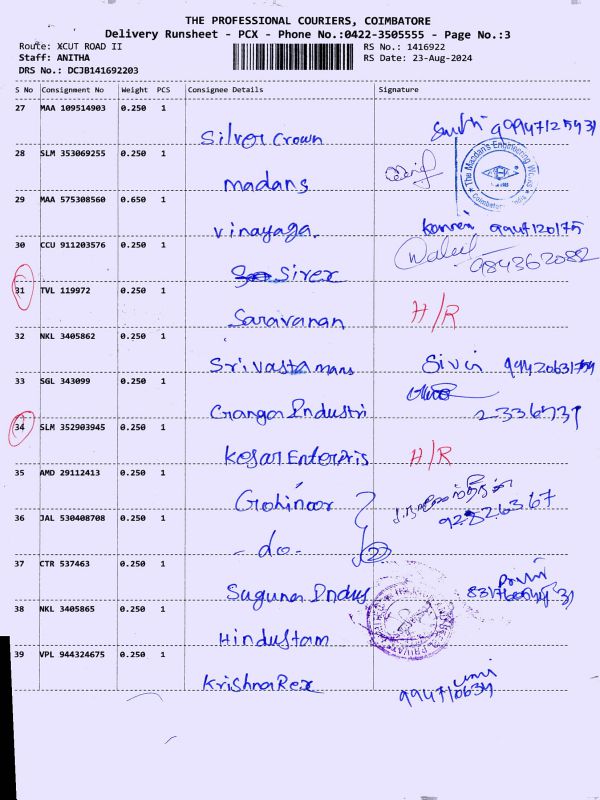 THE PROFESSIONAL COURIERS, COIMBATORE
Delivery Runsheet - PCX - Phone No.:0422-3505555 - Page No.:3
Route: XCUT ROAD II RS No.: 1416922
Staff: ANITHA RS Date: 23-Aug-2024
DRS No.: DCJB141692203
S No Consignment No Weight PCS Consignee Details Signature
27 MAA 109514903 0.250 1
Silver Crown
28 SLM 353069255 0.250 1
madans
The Madan's Engineering Works
Coimbatore India
29 MAA 575308560 0.650 1
Vinayaga. 9947120175
30 CCU 911203576 0.250 1
Sivex 984362082
31 TVL 119972 0.250 1
Saravanan H/R
32 NKL 3405862 0.250 1
Srivasta mans
33 SGL 343099 0.250 1
Ganga Industri 2336731
34 SLM 352903945 0.250 1
Kesar Enterpris H/R
35 AMD 29112413 0.250 1
Gohinoor
9282.63.67
36 JAL 530408708 0.250 1
- do - 2
37 CTR 537463 0.250 1
Suguna Indus
38 NKL 3405865 0.250 1
Hindustam
39 VPL 944324675 0.250 1
Krishna Rex